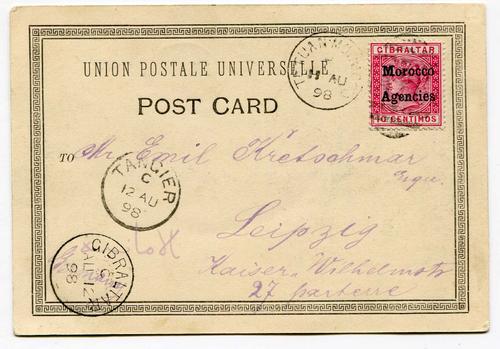 UNION POSTALE UNIVERSELLE
POST CARD
GIBRALTAR
Morocco
Agencies
10 CENTIMOS
TETUAN-MOROCCO
11 AU
98
TO Mr. Emil Kretschmar
Esqre.
TANGIER
C
12 AU
98
Leipzig
Kaiser-Wilhelmstr
27 parterre
GIBRALTAR
AU 12
98